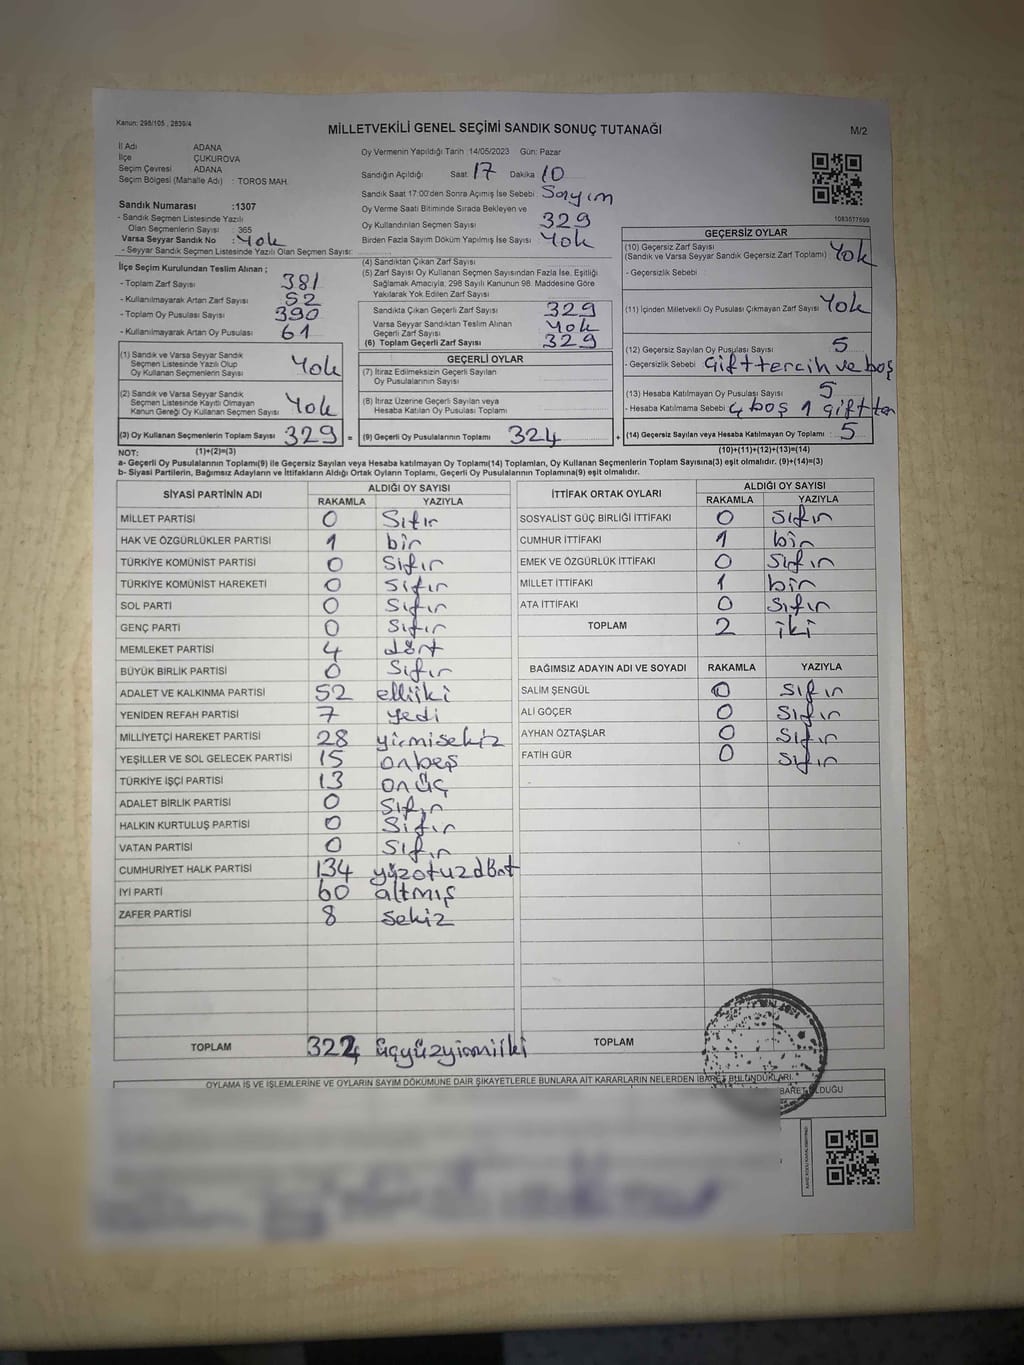 Kanun: 298/105 , 2839/4
MİLLETVEKİLİ GENEL SEÇİMİ SANDIK SONUÇ TUTANAĞI
M/2
İl Adı ADANA
İlçe ÇUKUROVA
Seçim Çevresi ADANA
Seçim Bölgesi (Mahalle Adı) : TOROS MAH.
Sandık Numarası :1307
- Sandık Seçmen Listesinde Yazılı
Olan Seçmenlerin Sayısı : 365
Varsa Seyyar Sandık No : Yok
- Seyyar Sandık Seçmen Listesinde Yazılı Olan Seçmen Sayısı:
Oy Vermenin Yapıldığı Tarih :14/05/2023 Gün: Pazar
Sandığın Açıldığı Saat: 17 Dakika: 10
Sandık Saat 17:00'den Sonra Açılmış İse Sebebi : Sayım
Oy Verme Saati Bitiminde Sırada Bekleyen ve
Oy Kullandırılan Seçmen Sayısı : 329
Birden Fazla Sayım Döküm Yapılmış İse Sayısı : Yok
1083577599
İlçe Seçim Kurulundan Teslim Alınan ;
- Toplam Zarf Sayısı : 381
- Kullanılmayarak Artan Zarf Sayısı : 52
- Toplam Oy Pusulası Sayısı : 390
- Kullanılmayarak Artan Oy Pusulası : 61
(1) Sandık ve Varsa Seyyar Sandık
Seçmen Listesinde Yazılı Olup
Oy Kullanan Seçmenlerin Sayısı : Yok
(2) Sandık ve Varsa Seyyar Sandık
Seçmen Listesinde Kayıtlı Olmayan
Kanun Gereği Oy Kullanan Seçmen Sayısı : Yok
(3) Oy Kullanan Seçmenlerin Toplam Sayısı : 329 =
(4) Sandıktan Çıkan Zarf Sayısı :
(5) Zarf Sayısı Oy Kullanan Seçmen Sayısından Fazla İse, Eşitliği
Sağlamak Amacıyla, 298 Sayılı Kanunun 98. Maddesine Göre
Yakılarak Yok Edilen Zarf Sayısı :
Sandıkta Çıkan Geçerli Zarf Sayısı : 329
Varsa Seyyar Sandıktan Teslim Alınan
Geçerli Zarf Sayısı : Yok
(6) Toplam Geçerli Zarf Sayısı : 329
GEÇERLİ OYLAR
(7) İtiraz Edilmeksizin Geçerli Sayılan
Oy Pusulalarının Sayısı :
(8) İtiraz Üzerine Geçerli Sayılan veya
Hesaba Katılan Oy Pusulası Toplamı :
(9) Geçerli Oy Pusulalarının Toplamı : 324 +
GEÇERSİZ OYLAR
(10) Geçersiz Zarf Sayısı
(Sandık ve Varsa Seyyar Sandık Geçersiz Zarf Toplamı) : Yok
- Geçersizlik Sebebi :
(11) İçinden Milletvekili Oy Pusulası Çıkmayan Zarf Sayısı : Yok
(12) Geçersiz Sayılan Oy Pusulası Sayısı : 5
- Geçersizlik Sebebi : Çifttercih ve boş
(13) Hesaba Katılmayan Oy Pusulası Sayısı : 5
- Hesaba Katılmama Sebebi : 4 boş 1 çiftter
(14) Geçersiz Sayılan veya Hesaba Katılmayan Oy Toplamı : 5
NOT: (1)+(2)=(3) (10)+(11)+(12)+(13)=(14)
a- Geçerli Oy Pusulalarının Toplamı(9) ile Geçersiz Sayılan veya Hesaba katılmayan Oy Toplamı(14) Toplamları, Oy Kullanan Seçmenlerin Toplam Sayısına(3) eşit olmalıdır. (9)+(14)=(3)
b- Siyasi Partilerin, Bağımsız Adayların ve İttifakların Aldığı Ortak Oyların Toplamı, Geçerli Oy Pusulalarının Toplamına(9) eşit olmalıdır.
SİYASİ PARTİNİN ADI ALDIĞI OY SAYISI
RAKAMLA YAZIYLA
MİLLET PARTİSİ 0 Sıfır
HAK VE ÖZGÜRLÜKLER PARTİSİ 1 bir
TÜRKİYE KOMÜNİST PARTİSİ 0 Sıfır
TÜRKİYE KOMÜNİST HAREKETİ 0 Sıfır
SOL PARTİ 0 Sıfır
GENÇ PARTİ 0 Sıfır
MEMLEKET PARTİSİ 4 dört
BÜYÜK BİRLİK PARTİSİ 0 Sıfır
ADALET VE KALKINMA PARTİSİ 52 elliiki
YENİDEN REFAH PARTİSİ 7 yedi
MİLLİYETÇİ HAREKET PARTİSİ 28 yirmisekiz
YEŞİLLER VE SOL GELECEK PARTİSİ 15 onbeş
TÜRKİYE İŞÇİ PARTİSİ 13 onüç
ADALET BİRLİK PARTİSİ 0 Sıfır
HALKIN KURTULUŞ PARTİSİ 0 Sıfır
VATAN PARTİSİ 0 Sıfır
CUMHURİYET HALK PARTİSİ 134 yüzotuzdört
İYİ PARTİ 60 altmış
ZAFER PARTİSİ 8 sekiz
TOPLAM 322 üçyüzyirmiiki
İTTİFAK ORTAK OYLARI ALDIĞI OY SAYISI
RAKAMLA YAZIYLA
SOSYALİST GÜÇ BİRLİĞİ İTTİFAKI 0 Sıfır
CUMHUR İTTİFAKI 1 bir
EMEK VE ÖZGÜRLÜK İTTİFAKI 0 Sıfır
MİLLET İTTİFAKI 1 bir
ATA İTTİFAKI 0 Sıfır
TOPLAM 2 iki
BAĞIMSIZ ADAYIN ADI VE SOYADI RAKAMLA YAZIYLA
SALİM ŞENGÜL 0 Sıfır
ALİ GÖÇER 0 Sıfır
AYHAN ÖZTAŞLAR 0 Sıfır
FATİH GÜR 0 Sıfır
TOPLAM
OYLAMA İŞ VE İŞLEMLERİNE VE OYLARIN SAYIM DÖKÜMÜNE DAİR ŞİKAYETLERLE BUNLARA AİT KARARLARIN NELERDEN İBARET BULUNDUKLARI